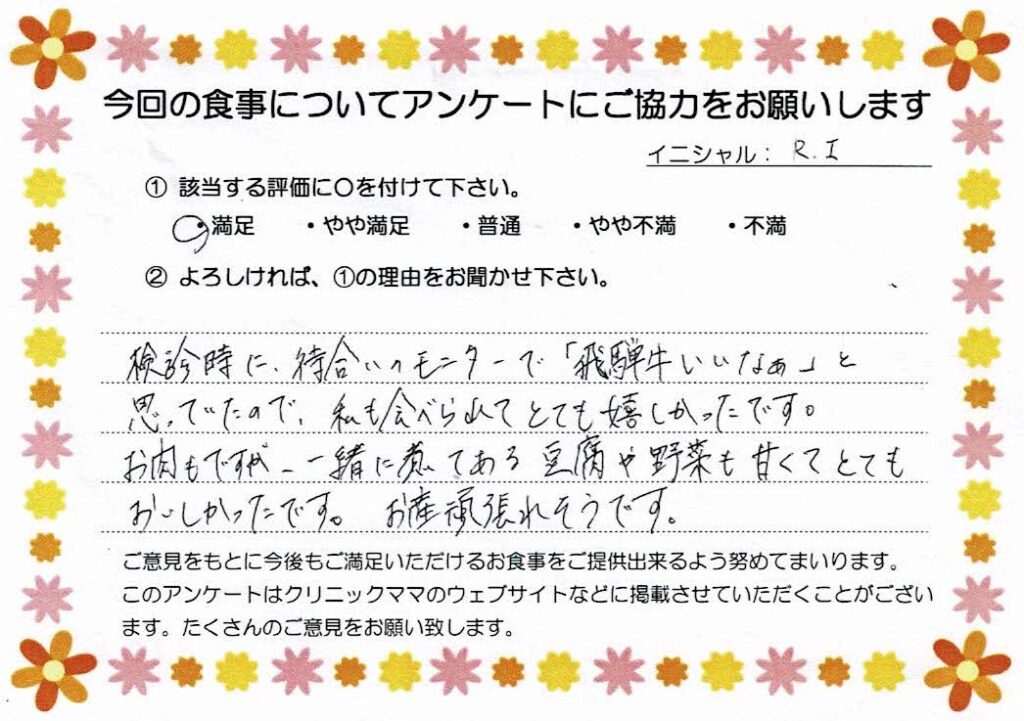 今回の食事についてアンケートにご協力をお願いします
イニシャル： R.I
① 該当する評価に○を付けて下さい。
・満足 ・やや満足 ・普通 ・やや不満 ・不満
② よろしければ、①の理由をお聞かせ下さい。
検診時に、待合いのモニターで「飛騨牛いいなぁ」と
思っていたので、私も食べられてとても嬉しかったです。
お肉もですが、一緒に煮てある豆腐や野菜も甘くてとても
おいしかったです。 お産頑張れそうです。
ご意見をもとに今後もご満足いただけるお食事をご提供出来るよう努めてまいります。
このアンケートはクリニックママのウェブサイトなどに掲載させていただくことがござい
ます。たくさんのご意見をお願い致します。